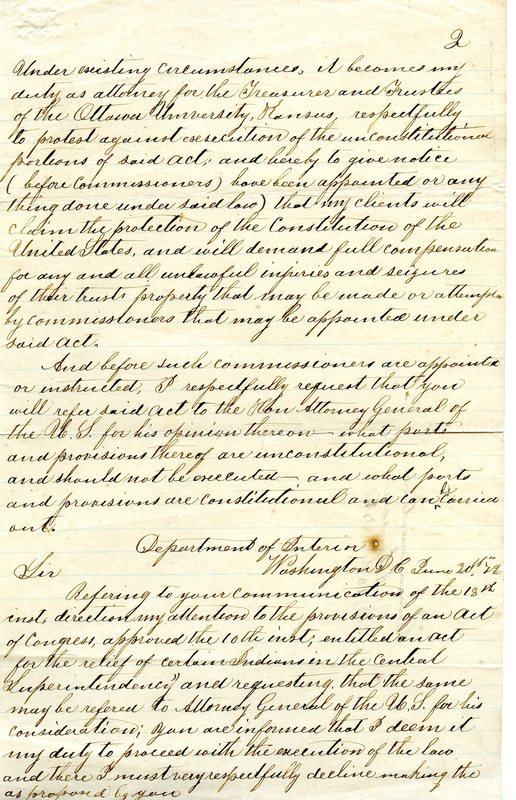 2
Under existing circumstances, it becomes my
duty as attorney for the Treasurer and Trustees
of the Ottawa University, Kansas, respectfully
to protest against exesecution of the unconstitutional
portions of said Act, and hereby to give notice
(before Commissioners) have been appointed or any
thing done under said law) that my clients will
claim the protection of the Constitution of the
United States, and will demand full compensation
for any and all unlawful injuries and seizures
of their trust property that may be made or attempted
by commissioners that may be appointed under
said Act.
And before such commissioners are appointed
or instructed, I respectfully request that you
will refer said Act to the Hon Attorney General of
the U. S. for his opinion thereon — what parts
and provisions thereof are unconstitutional,
and should not be executed — and what parts
and provisions are constitutional and can be carried
out.
Department of Interior
Washington D C June 20th, 72
Sir
Refering to your communication of the 18th
inst, direction my attention to the provisions of an Act
of Congress, approved the 10th inst; entitled an act
for the relief of certain Indians in the Central
Superintendency" and requesting that the same
may be refered to Attorney General of the U. S. for his
consideration; you are informed that I deem it
my duty to proceed with the execution of the law
and there I must very respectfully decline making the
as proposed by you